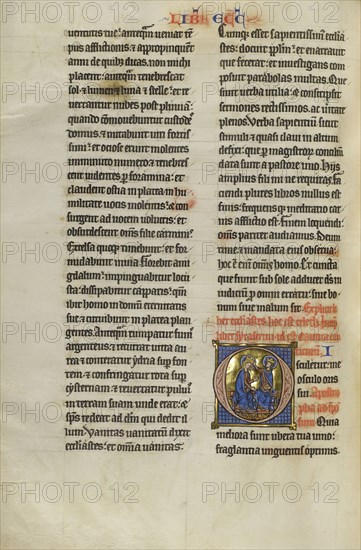 LIBR ECC
uentutis tue: antequam ueniat tem
pus afflictionis: & appropinquent
anni de quibus dicas. non michi
placent: antequam tenebrescat
sol & lumen & luna & stelle: et re
uertantur nubes post pluuiam:
quando commouebuntur custodes
domus: & nutabunt uiri fortis
simi: et ociose erunt molentes
imminuto numero: & tenebres
cent uidentes per foramina: et
claudent ostia in platea in hu
militate uocis molentis: & con
surgent ad uocem uolucris: et
obsurdescent omnes filie carminis.
Excelsa quoque timebunt: et for
midabunt in uia. Florebit ami
gdalum: impinguabitur locu
sta: dissipabitur capparis: quoniam
ibit homo in domum eternitatis
sue: & circuibunt in platea plan
gentes. Antequam rumpatur funis
argenteus: & recurrat uitta au
rea: & conteratur ydria super fon
tem: & confringatur rota super
cysternam: & reuertatur puluis
in terram suam unde erat: &
spiritus redeat ad deum qui dedit il
lum. Vanitas uanitatum dixit
ecclesiastes: et omnia uanitas.
Cumque esset sapientissimus eccle
siastes: docuit populum: et enarrauit
que fecerat: et inuestigans com
posuit parabolas multas. Que
siuit uerba utilia: et conscripsit
sermones rectissimos. ac ueritate
plenos. Verba sapientum sicut
stimuli: & quasi claui in altum
defixi: que per magistrorum consilium
data sunt a pastore uno. Hijs
amplius fili mi ne requiras. Fa
ciendi plures libros nullus est
finis: frequensque meditatio car
nis afflictio est. Finem loquendi
omnes pariter audiamus. Deum
time: & mandata eius obserua:
hoc est enim omnis homo. Et cuncta
que fiunt sub sole adducet deus in
iudicium pro omni errato: siue bo
num siue malum sit. Explicit
liber ecclesiastes hoc est
incipit cantica canti
corum. I
Osculetur me
osculo oris
sui
Quia
meliora sunt ubera tua uino:
fraglantia unguentis optimis.
PHOTO 12